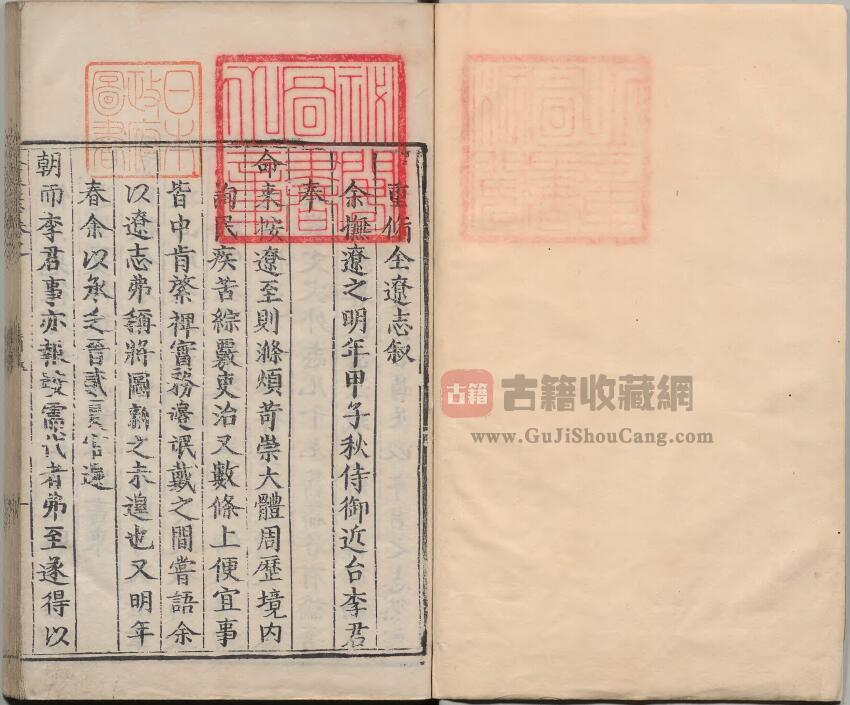 重脩全遼志叙
余撫遼之明年甲子秋侍御近台李君
奉
命来按遼至則滌煩苛崇大體周歷境内
詢民疾苦綜覈吏治又數條上便宜事
皆中肯綮裨務邊氓戴之間嘗語余
以遼志弗稱將圖新之未遑也又明年
春余以承乏晉貳夏官還
朝而李君事亦報竣需代者弗至遂得以
秘閣圖書之章
日本政府圖書
古籍
古籍收藏網
www.GuJiShouCang.com